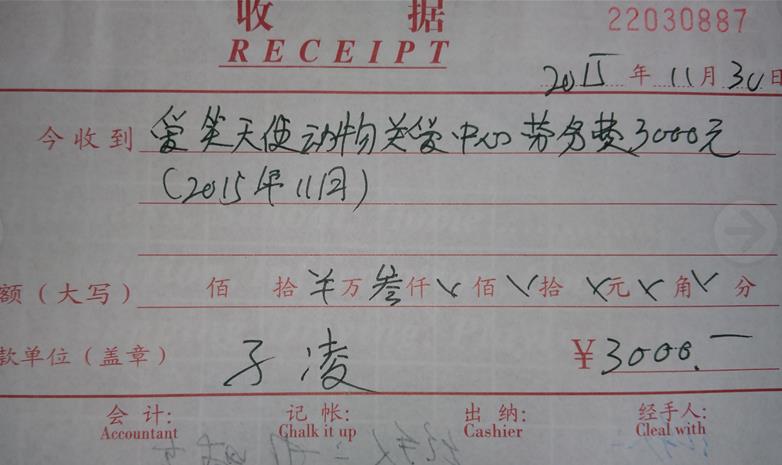 收据
RECEIPT
22030887
2015年11月30日
今收到 爱笑天使动物关爱中心劳务费3000元
(2015年11月)
额(大写) 佰 拾 万叁仟 佰 拾 元 角 分
款单位(盖章) 子凌 ¥3000.一
会计: 记帐: 出纳: 经手人:
Accountant Chalk it up Cashier Cleal with